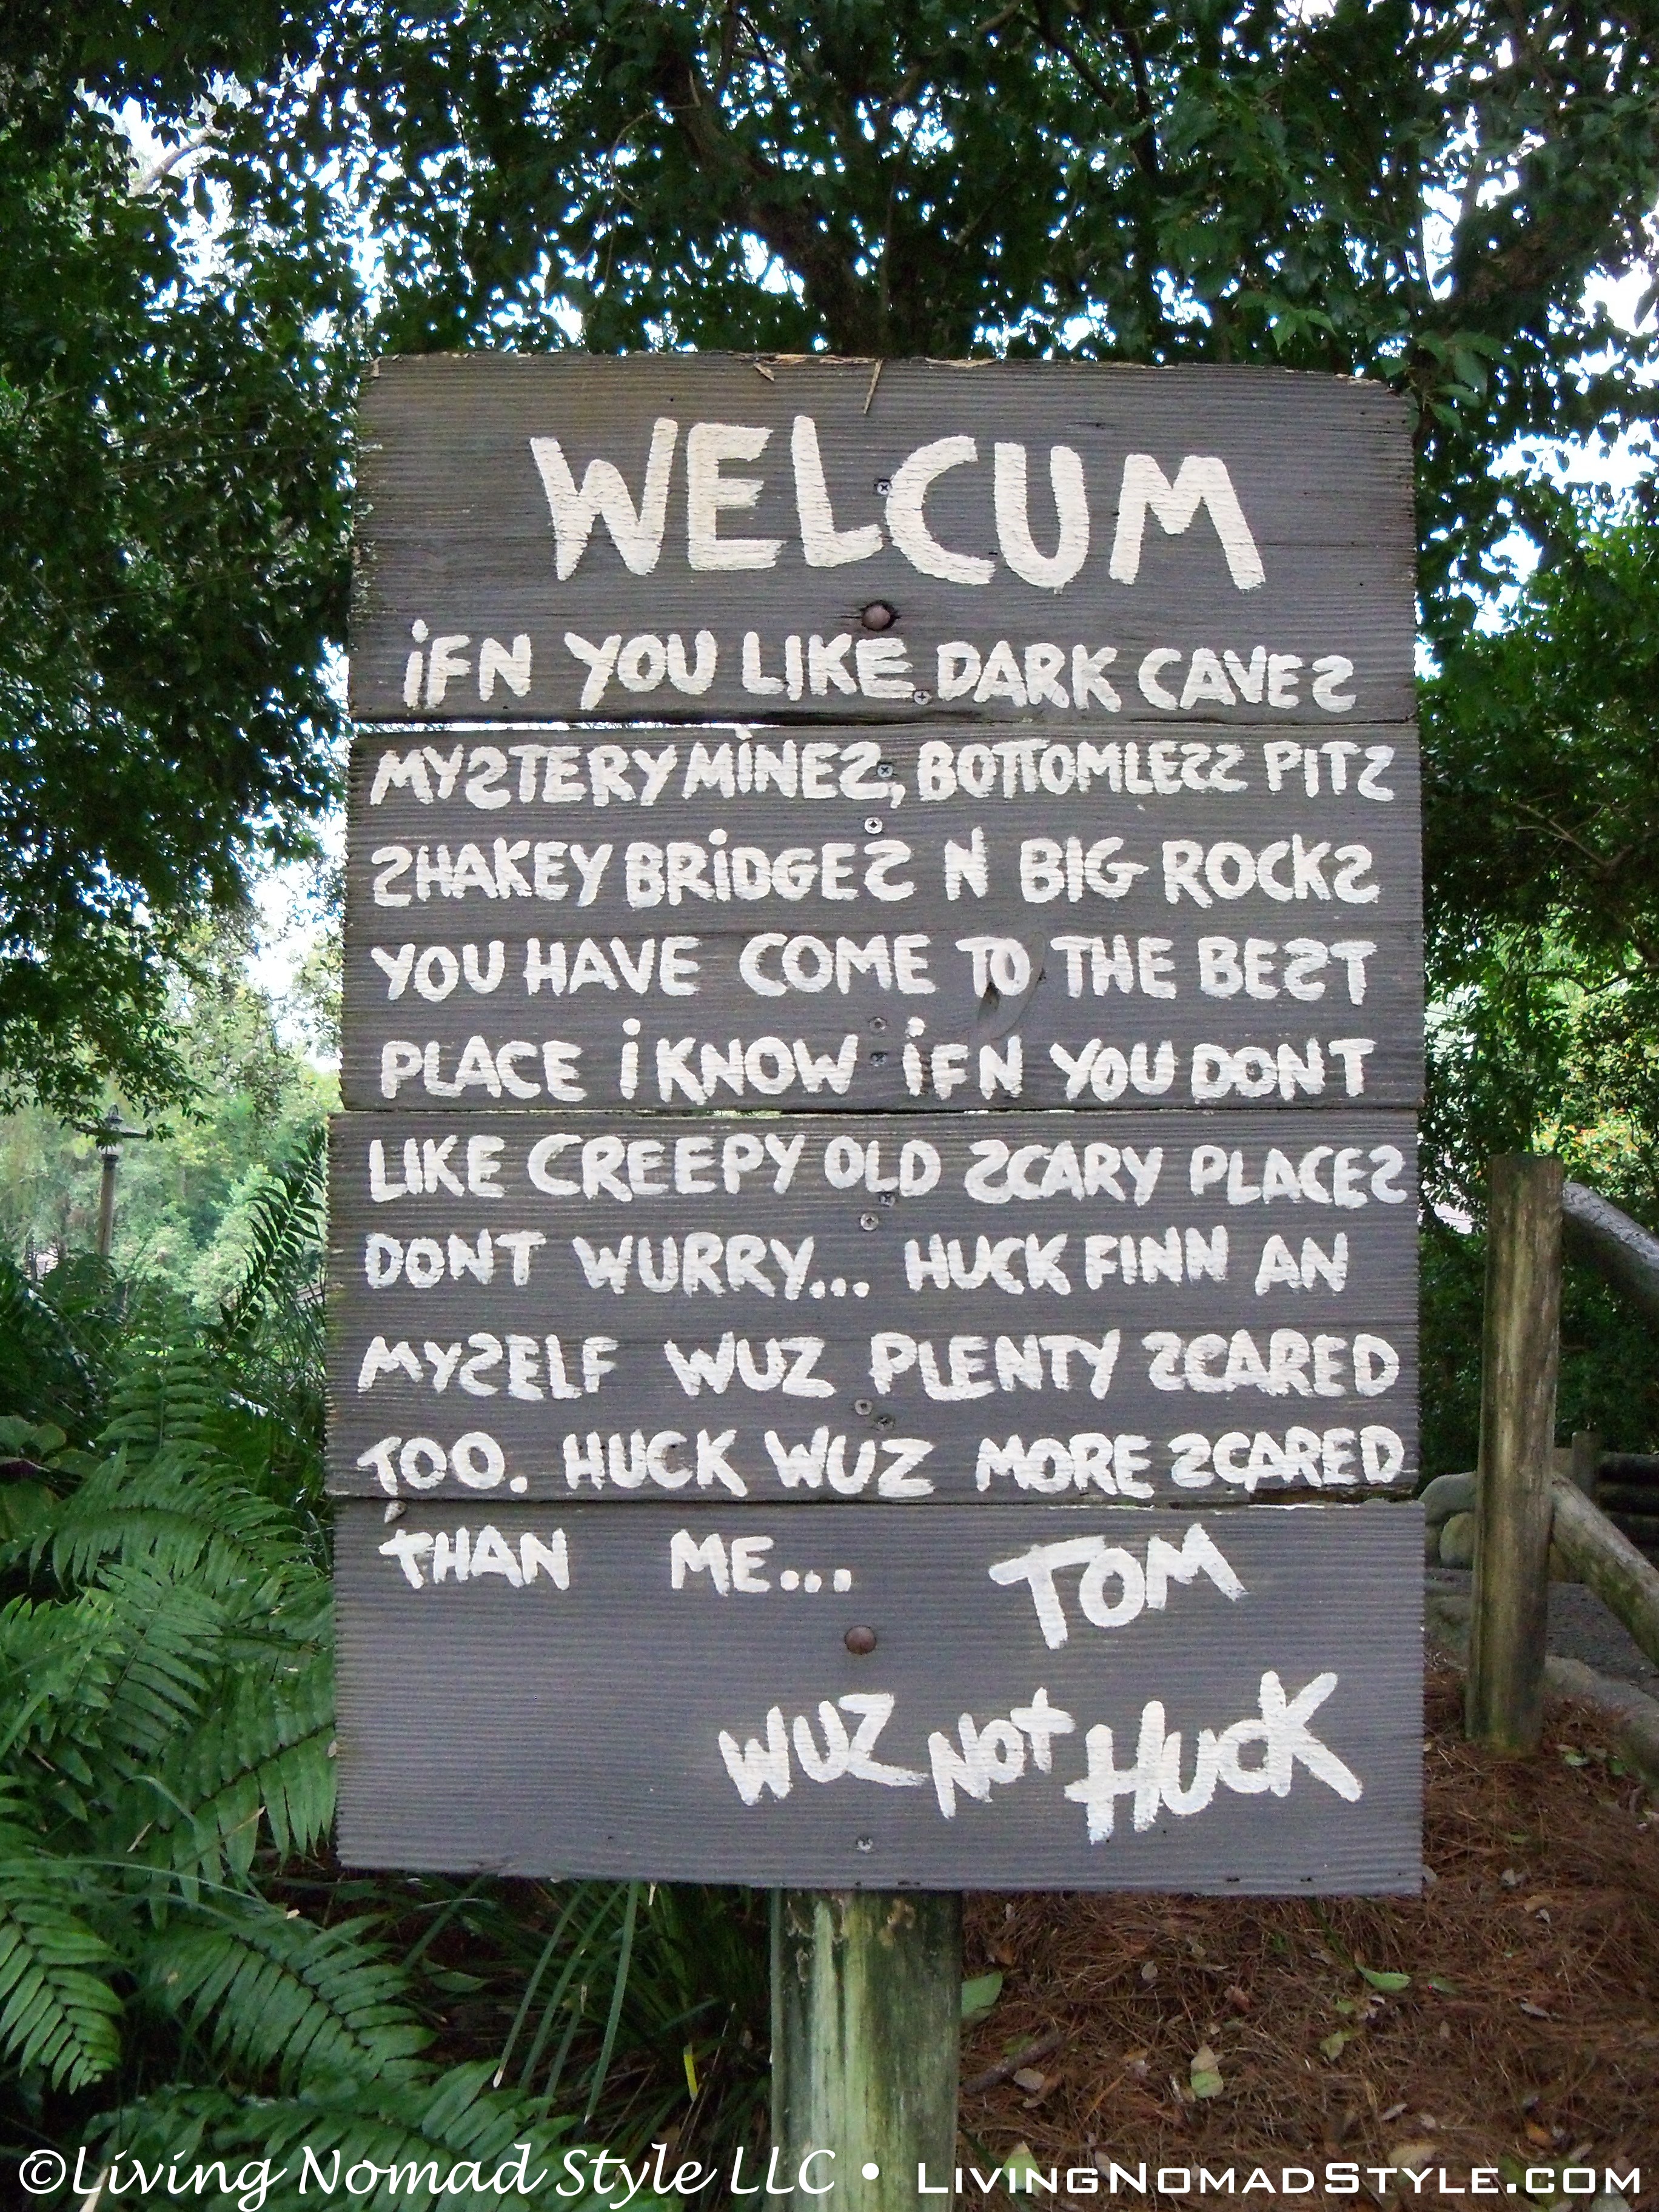 WELCUM
iFN YOU LIKE DARK CAVES
MYSTERY MiNES, BOTTOMLESS PITS
SHAKEY BRiDGES N BIG ROCKS
YOU HAVE COME TO THE BEST
PLACE i KNOW iFN YOU DONT
LIKE CREEPY OLD SCARY PLACES
DONT WURRY... HUCK FINN AN
MYSELF WUZ PLENTY SCARED
TOO. HUCK WUZ MORE SCARED
THAN ME... TOM
WUZ NOT HUCK
©Living Nomad Style LLC • LivingNomadStyle.com